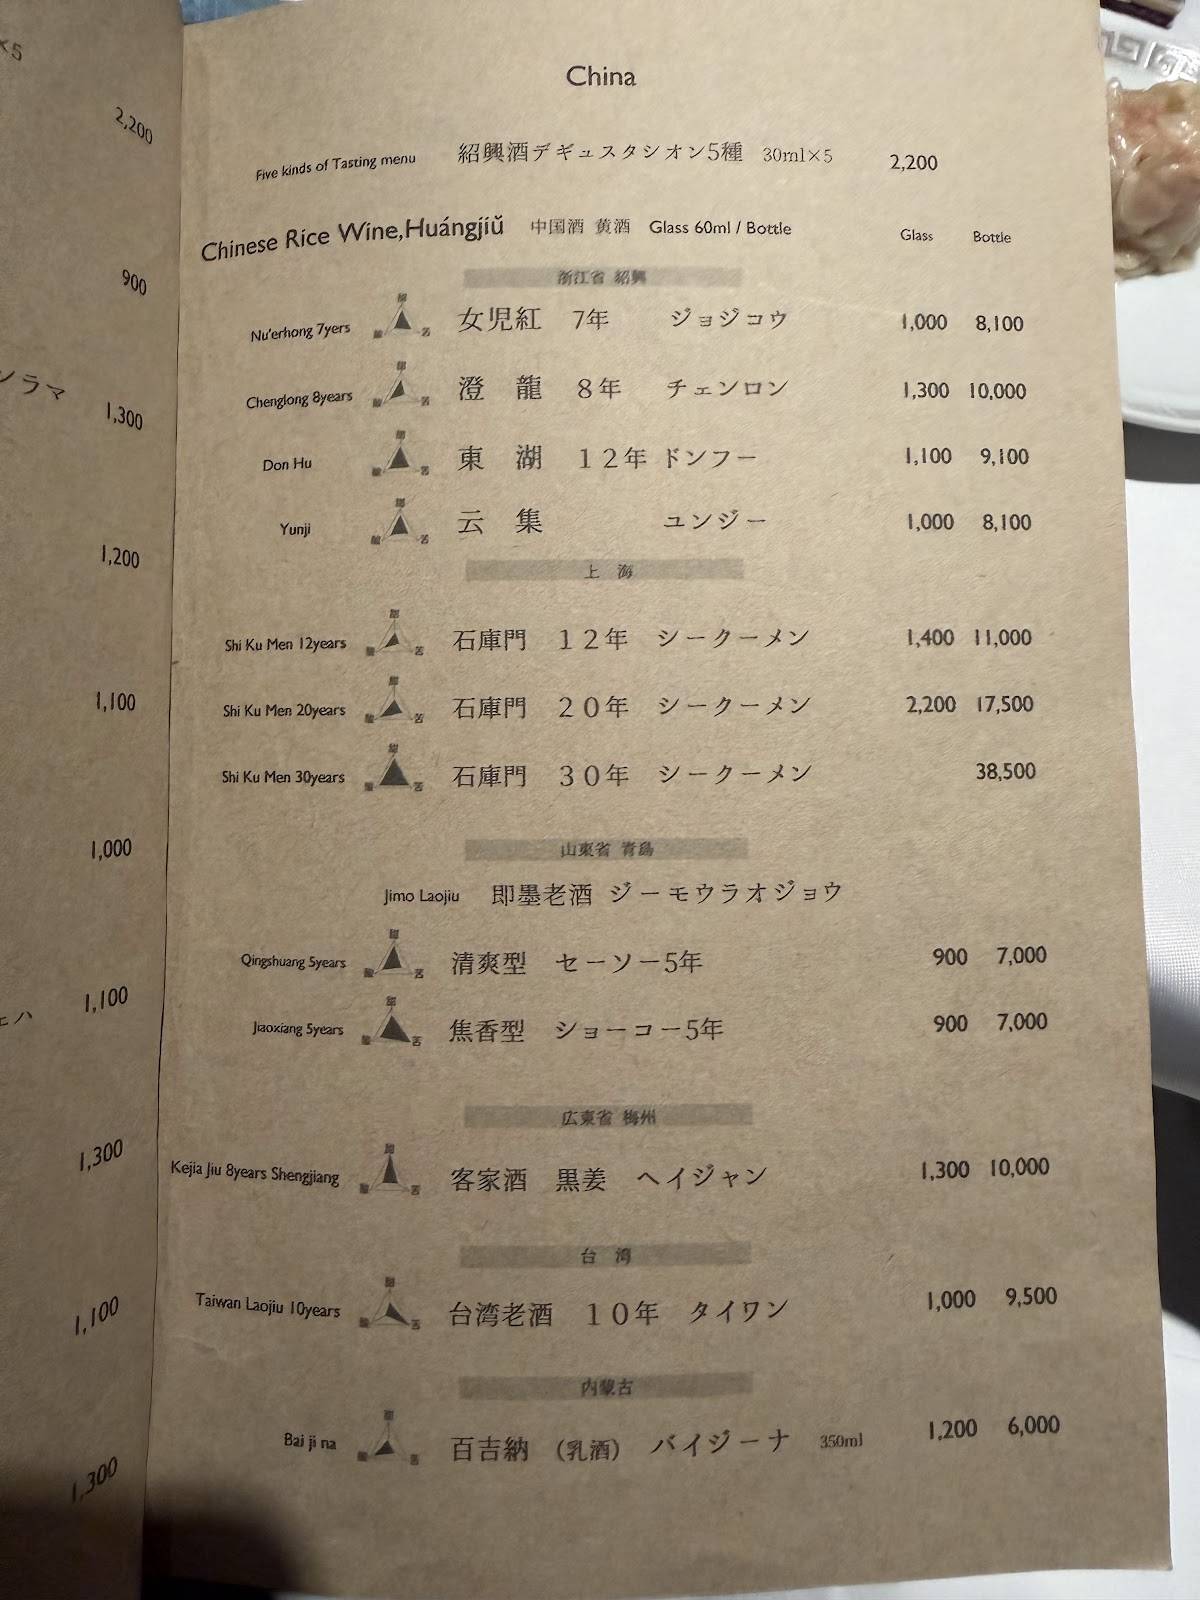 2,200
900
ンラマ
1,300
1,200
1,100
1,000
1,100
1,300
1,100
1,300
China
Five kinds of Tasting menu 紹興酒デギュスタシオン5種 30ml×5 2,200
Chinese Rice Wine,Huángjiǔ 中国酒 黄酒 Glass 60ml / Bottle Glass Bottle
浙江省 紹興
Nu'erhong 7yers 女児紅 7年 ジョジコウ 1,000 8,100
Chenglong 8years 澄 龍 8年 チェンロン 1,300 10,000
Don Hu 東 湖 12年 ドンフー 1,100 9,100
Yunji 云 集 ユンジー 1,000 8,100
上 海
Shi Ku Men 12years 石庫門 12年 シークーメン 1,400 11,000
Shi Ku Men 20years 石庫門 20年 シークーメン 2,200 17,500
Shi Ku Men 30years 石庫門 30年 シークーメン 38,500
山東省 青島
Jimo Laojiu 即墨老酒 ジーモウラオジョウ
Qingshuang 5years 清爽型 セーソー5年 900 7,000
Jiaoxiang 5years 焦香型 ショーコー5年 900 7,000
広東省 梅州
Kejia Jiu 8years Shengjiang 客家酒 黒姜 ヘイジャン 1,300 10,000
台 湾
Taiwan Laojiu 10years 台湾老酒 10年 タイワン 1,000 9,500
内蒙古
Bai ji na 百吉納 (乳酒) バイジーナ 350ml 1,200 6,000